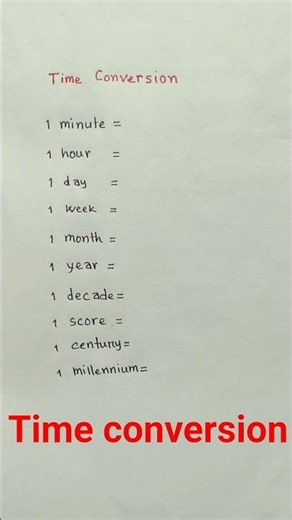 Time Conversion
1 minute =
1 hour =
1 day =
1 week =
1 month =
1 year =
1 decade=
1 score =
1 century=
1 millennium=
Time conversion